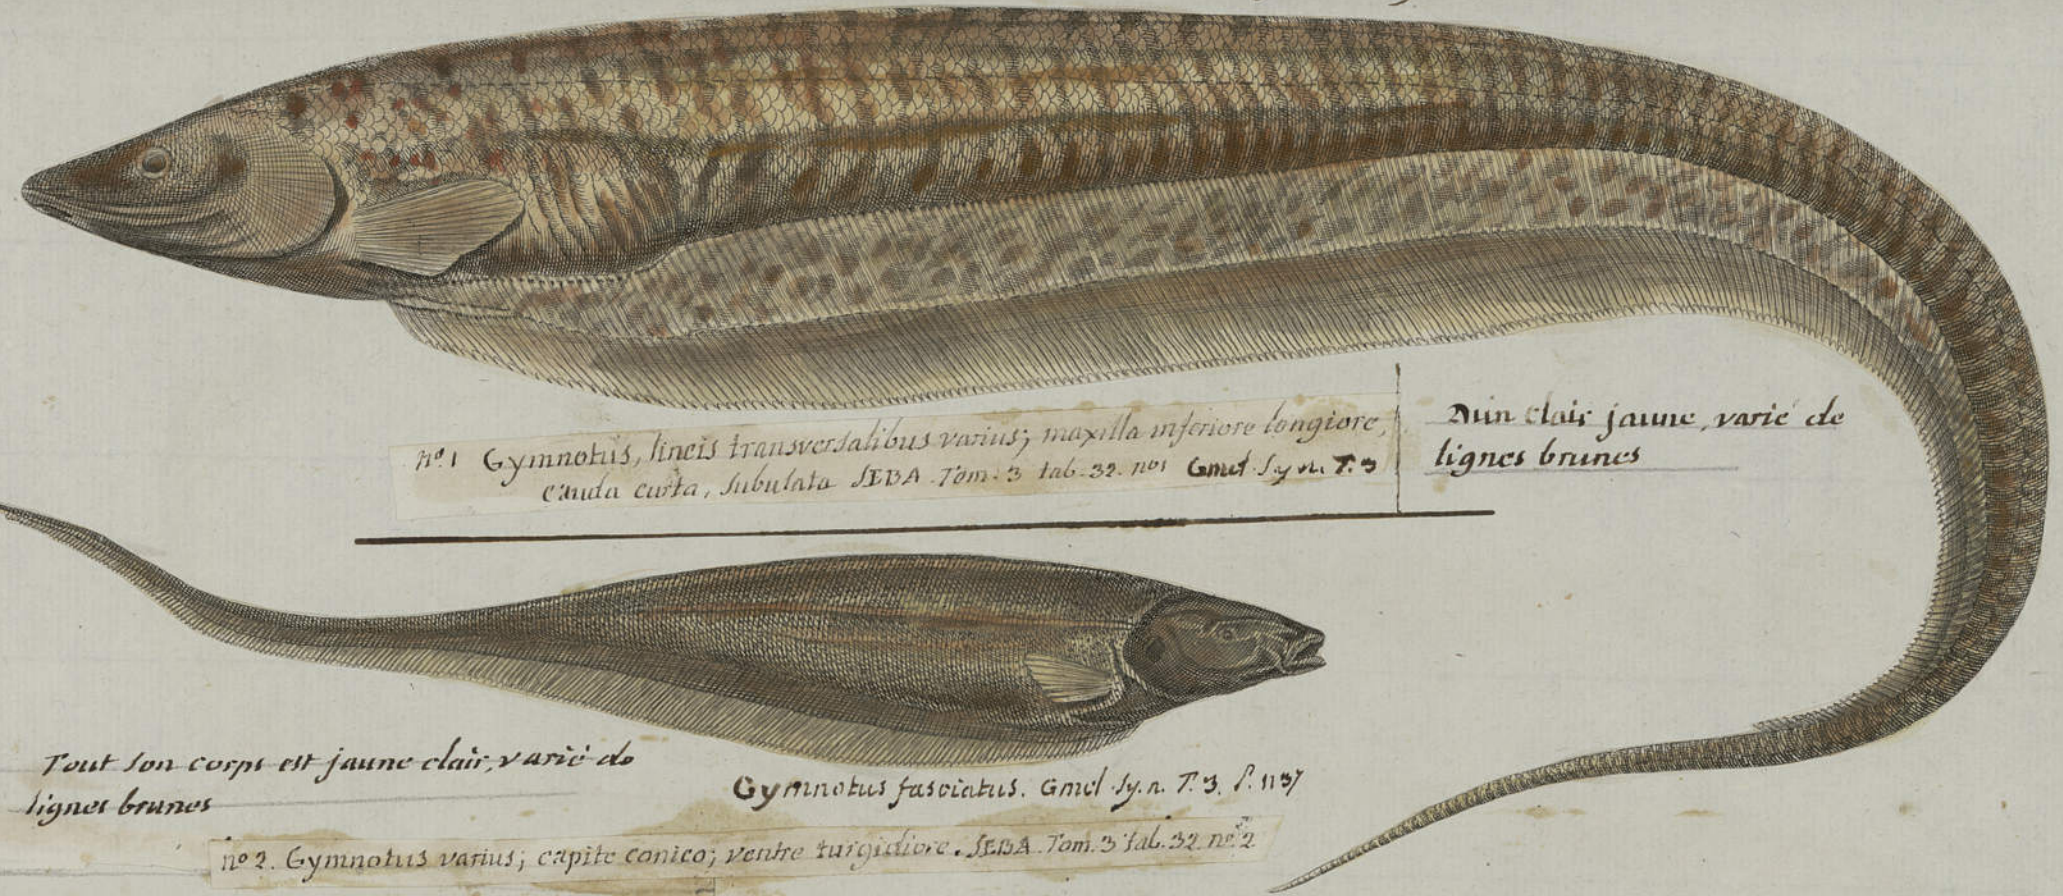 nº. 1 Gymnotus, lineis transversalibus varius; maxilla inferiore longiore,
cauda curta, subulata SEBA. Tom. 3 tab. 32. nº1 Gmel. Syn. T. 3
D'un clair jaune, varié de
lignes brunes
Tout son corps est jaune clair, varié de
lignes brunes
Gymnotus fasciatus. Gmel. Sy.n. T. 3. P. 1137
nº 2. Gymnotus varius; capite conico; ventre turgidiore. SEBA. Tom. 3 tab. 32 nº. 2